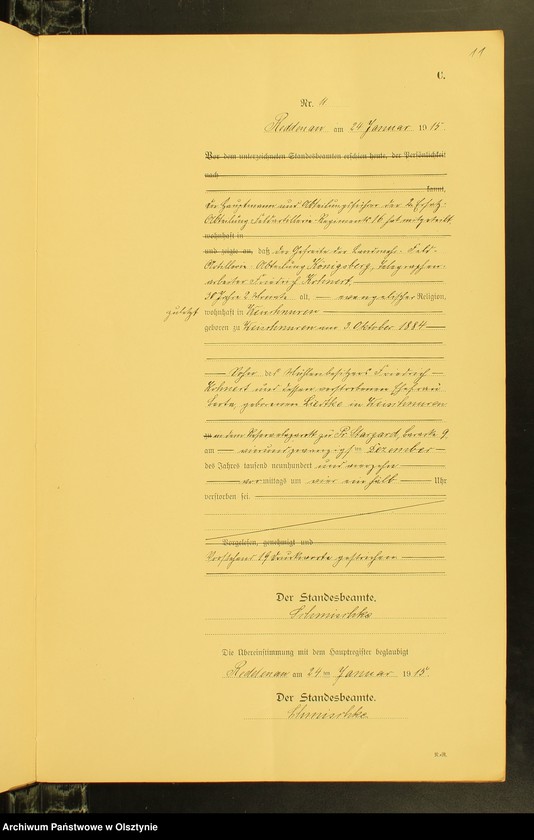 11
C.
Nr. 11
Reddenau am 24 Januar 1915.
Vor dem unterzeichneten Standesbeamten erschien heute, der Persönlichkeit
nach
kannt,
Der Hauptmann und Abteilungsführer der 2. Ersatz-
Abteilung Feldartillerie-Regiments 16 hat mitgeteilt
wohnhaft in
und zeigte an, daß der Gefreite der Landwehr-Feld-
Artillerie Abteilung Königsberg, Telegraphen-
arbeiter Friedrich Kohnert,
30 Jahre 2 Monate alt, evangelischer Religion,
zuletzt wohnhaft in
geboren zu am 3 Oktober 1884
Sohn des Mühlenbesitzers Friedrich
Kohnert und dessen verstorbenen Ehefrau
geborenen in
in dem zu Pr. Stargard, Baracke 9
am vierundzwanzigsten Dezember
des Jahres tausend neunhundert und vierzehn
vormittags um vier ein halb Uhr
verstorben sei.
Vorgelesen, genehmigt und
Vorstehend 14 Druckworte gestrichen
Der Standesbeamte.
Die Übereinstimmung mit dem Hauptregister beglaubigt
Reddenau am 24ten Januar 1915.
Der Standesbeamte.
Archiwum Państwowe w Olsztynie